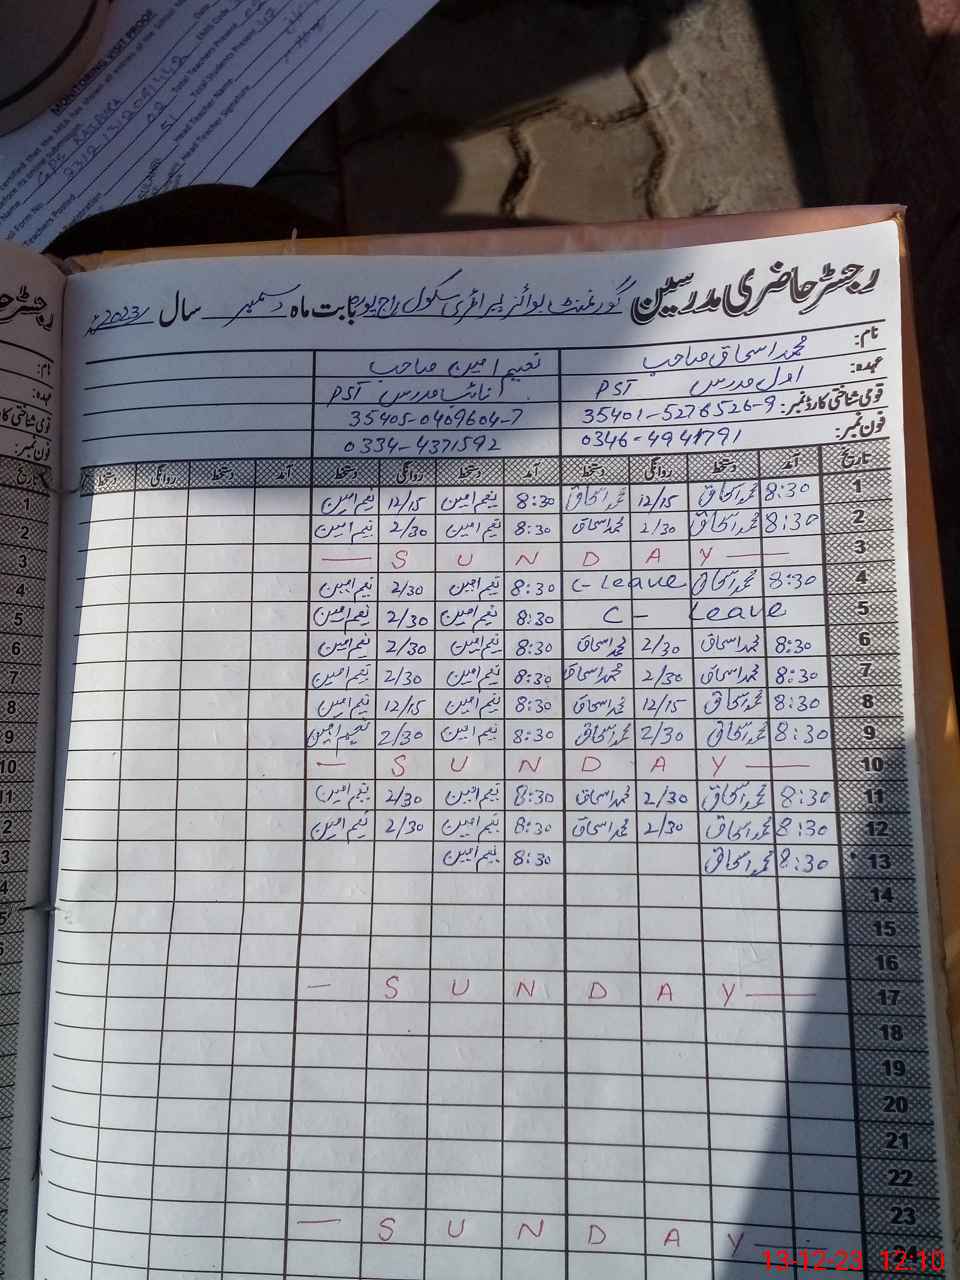 MONITORING VISIT PROOF
رجسٹر حاضری مدرسین گورنمنٹ بوائز پرائمری سکول راجپورہ بابت ماہ دسمبر سال 2023ء
نام: محمد اسحاق صاحب نعیم امین صاحب
عہدہ: اول مدرس PST مدرس PST
قومی شناختی کارڈ نمبر: 35401-5276526-9 35405-0409604-7
فون نمبر: 0346-4941791 0334-4371592
تاریخ آمد دستخط روانگی دستخط آمد دستخط روانگی دستخط آمد دستخط روانگی دستخط
1 8:30 محمد اسحاق 12/15 محمد اسحاق 8:30 نعیم امین 12/15 نعیم امین
2 8:30 محمد اسحاق 2/30 محمد اسحاق 8:30 نعیم امین 2/30 نعیم امین
3 — S U N D A Y —
4 8:30 محمد اسحاق C-Leave 8:30 نعیم امین 2/30 نعیم امین
5 C - Leave 8:30 نعیم امین 2/30 نعیم امین
6 8:30 محمد اسحاق 2/30 محمد اسحاق 8:30 نعیم امین 2/30 نعیم امین
7 8:30 محمد اسحاق 2/30 محمد اسحاق 8:30 نعیم امین 2/30 نعیم امین
8 8:30 محمد اسحاق 12/15 محمد اسحاق 8:30 نعیم امین 12/15 نعیم امین
9 8:30 محمد اسحاق 2/30 محمد اسحاق 8:30 نعیم امین 2/30 نعیم امین
10 — S U N D A Y —
11 8:30 محمد اسحاق 2/30 محمد اسحاق 8:30 نعیم امین 2/30 نعیم امین
12 8:30 محمد اسحاق 2/30 محمد اسحاق 8:30 نعیم امین 2/30 نعیم امین
13 8:30 محمد اسحاق 8:30 نعیم امین
14
15
16
17 — S U N D A Y —
18
19
20
21
22
23
— S U N D A Y —
13-12-23 12:10